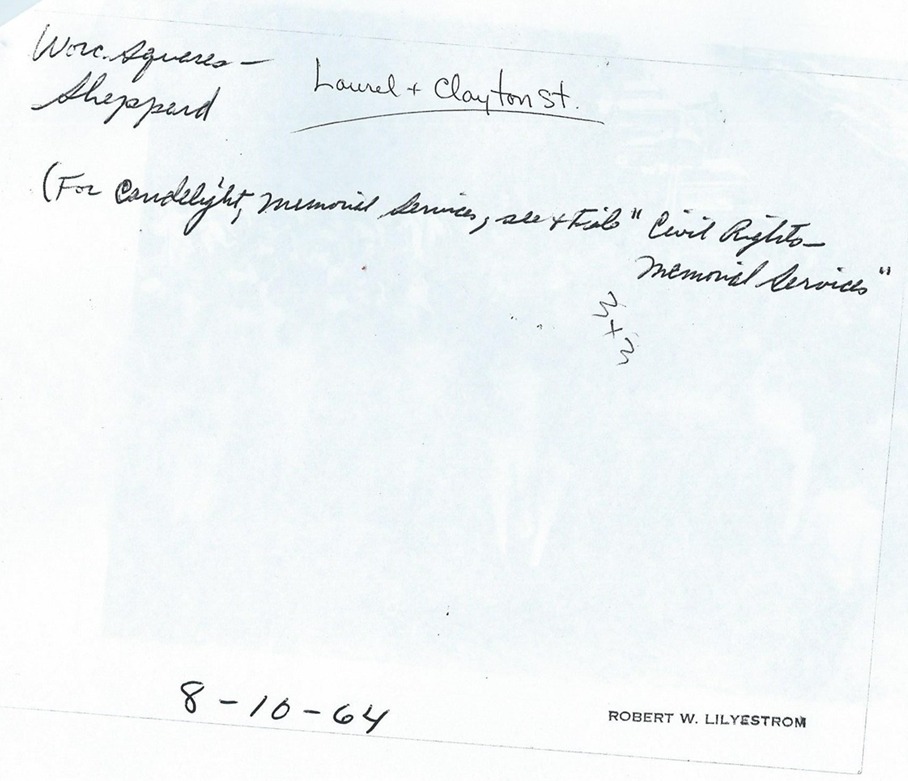 Worc. Squares –
Sheppard
Laurel + Clayton St.
(For Candelight, Memorial Services, see "Civil Rights –
Memorial Services"
8-10-64
ROBERT W. LILYESTROM